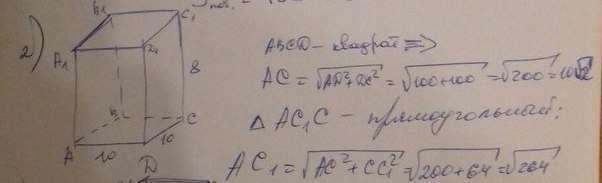 2)
B1
C1
A1
D1
8
B
C
A
10
10
D
ABCD – квадрат =>
AC = √AD²+DC² = √100+100 = √200 = 10√2
△ AC1C – прямоугольный:
AC1 = √AC²+CC1² = √200+64 = √264